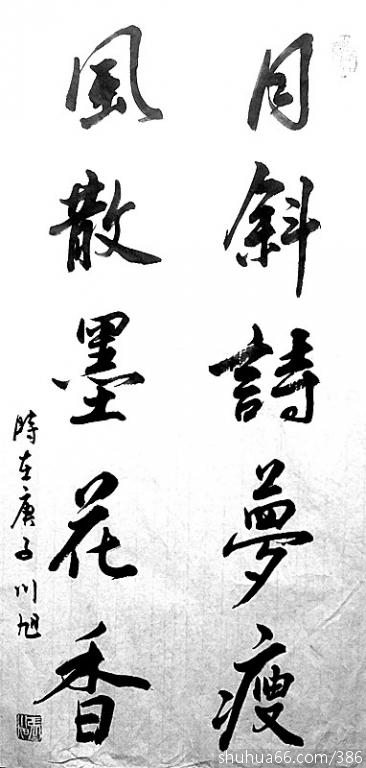 月斜詩夢瘦
風散墨花香
時在庚子川旭
shuhua66.com/386